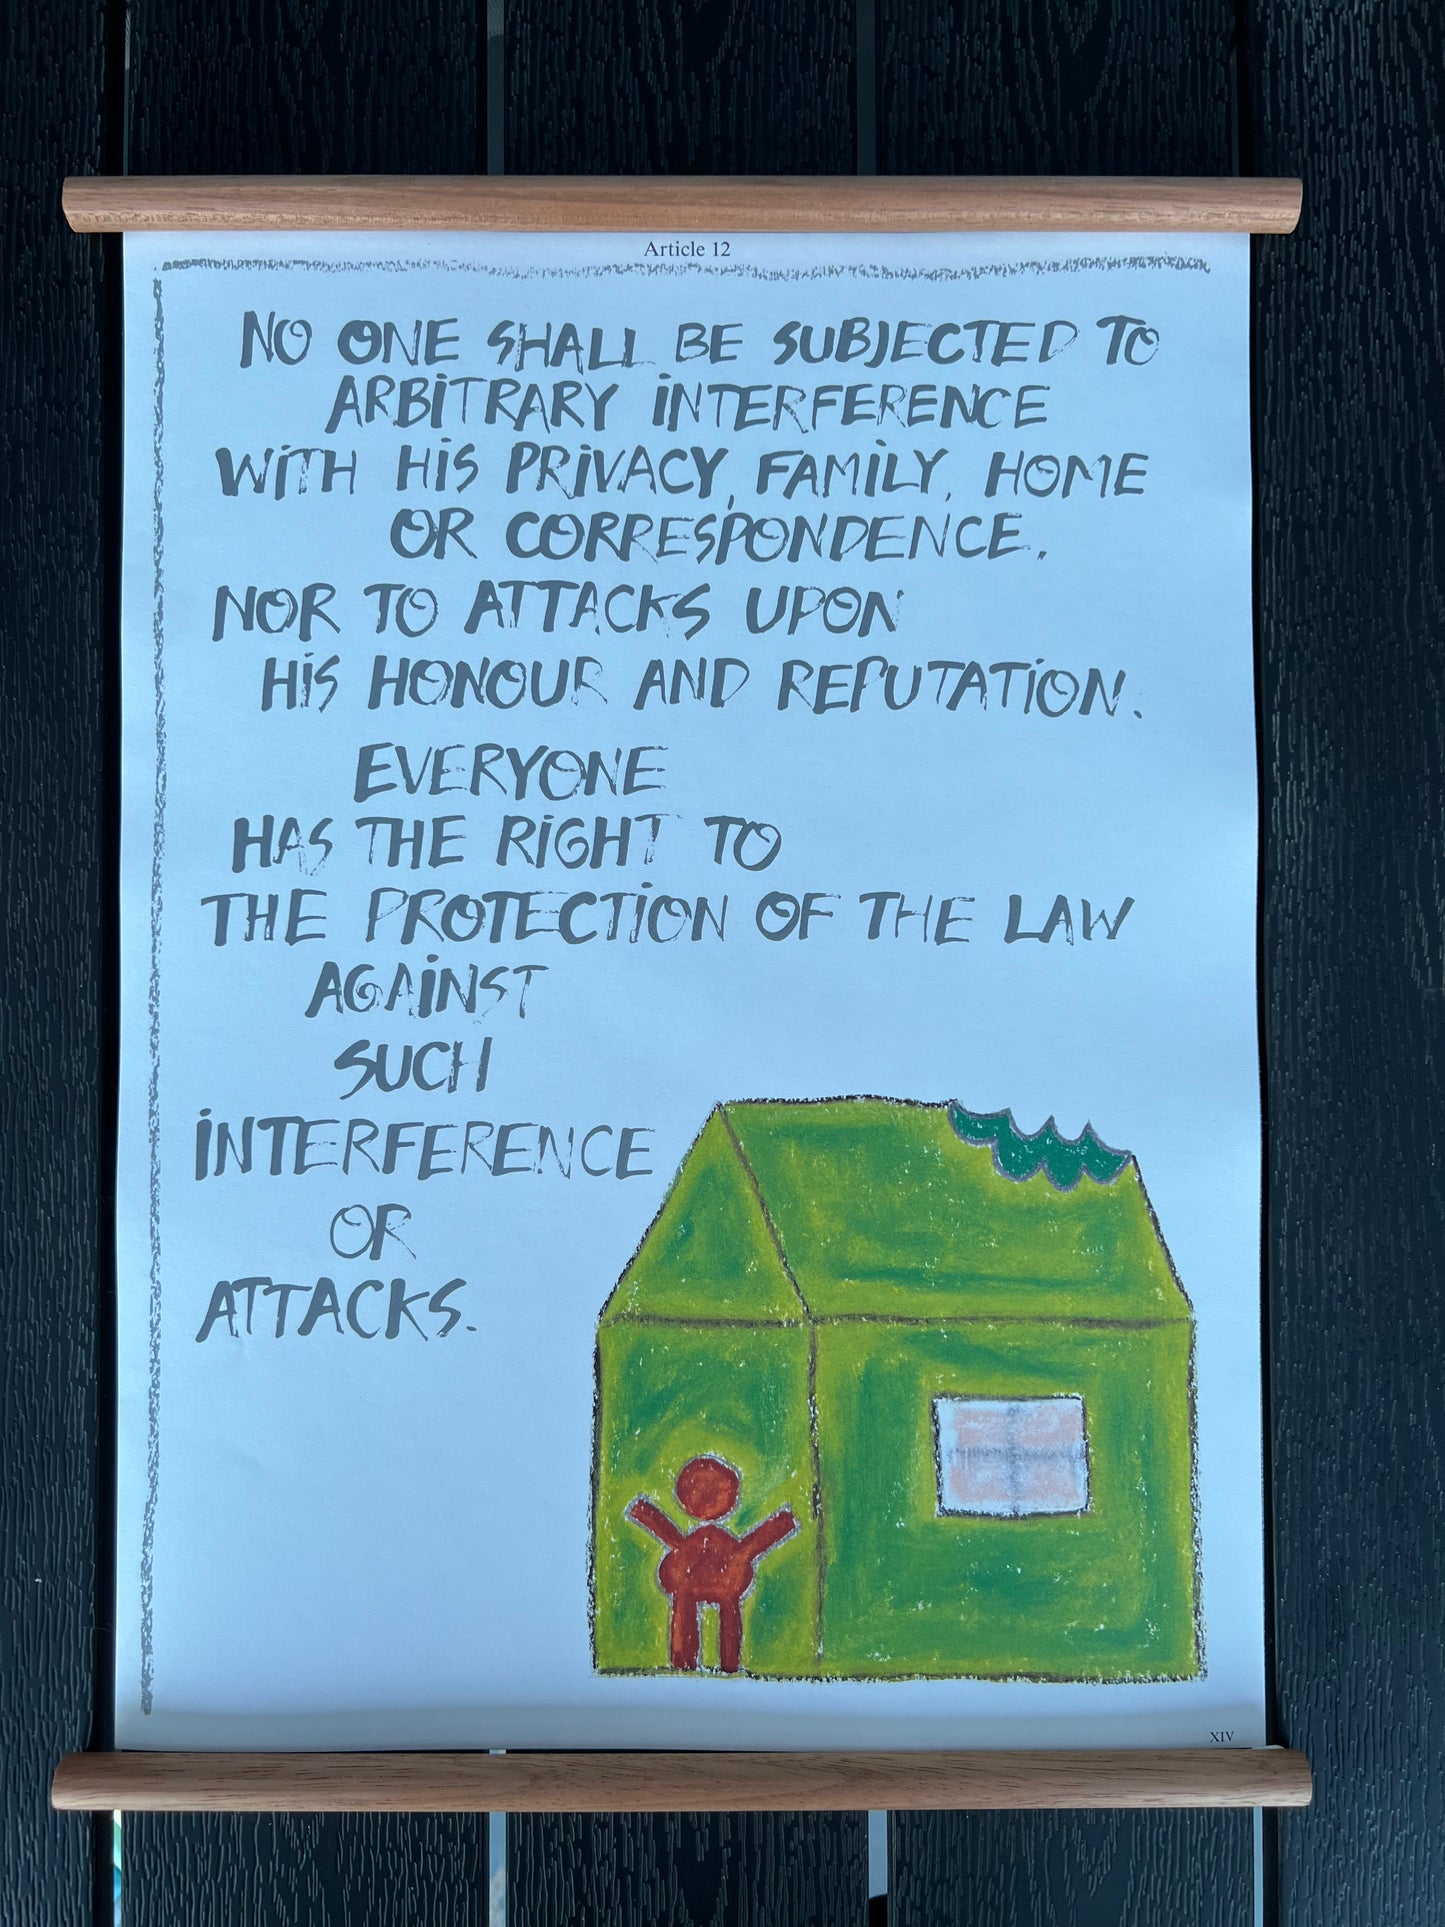 Article 12
NO ONE SHALL BE SUBJECTED TO
ARBITRARY INTERFERENCE
WITH HIS PRIVACY, FAMILY, HOME
OR CORRESPONDENCE,
NOR TO ATTACKS UPON
HIS HONOUR AND REPUTATION.
EVERYONE
HAS THE RIGHT TO
THE PROTECTION OF THE LAW
AGAINST
SUCH
INTERFERENCE
OR
ATTACKS.
XIV